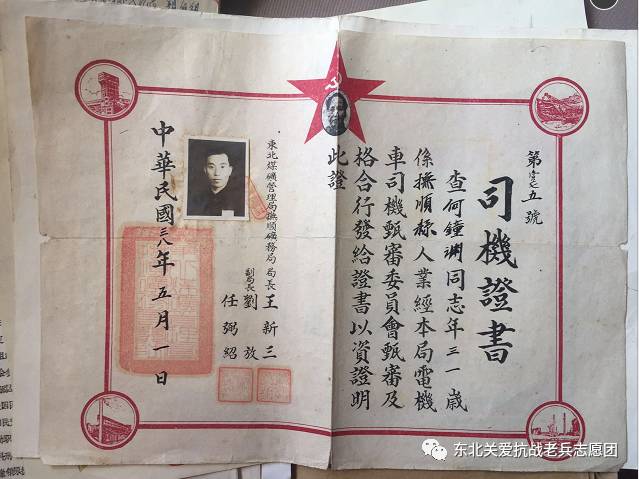 司機證書
第 五號
查何鐘渊同志年三一歲
係撫順縣人業經本局電機
車司機甄審委員會甄審及
格合行發給證書以資證明
此證
東北煤礦管理局撫順礦務局局長 王新三
副局長 劉放
任弼紹
中華民國三八年五月一日
东北关爱抗战老兵志愿团